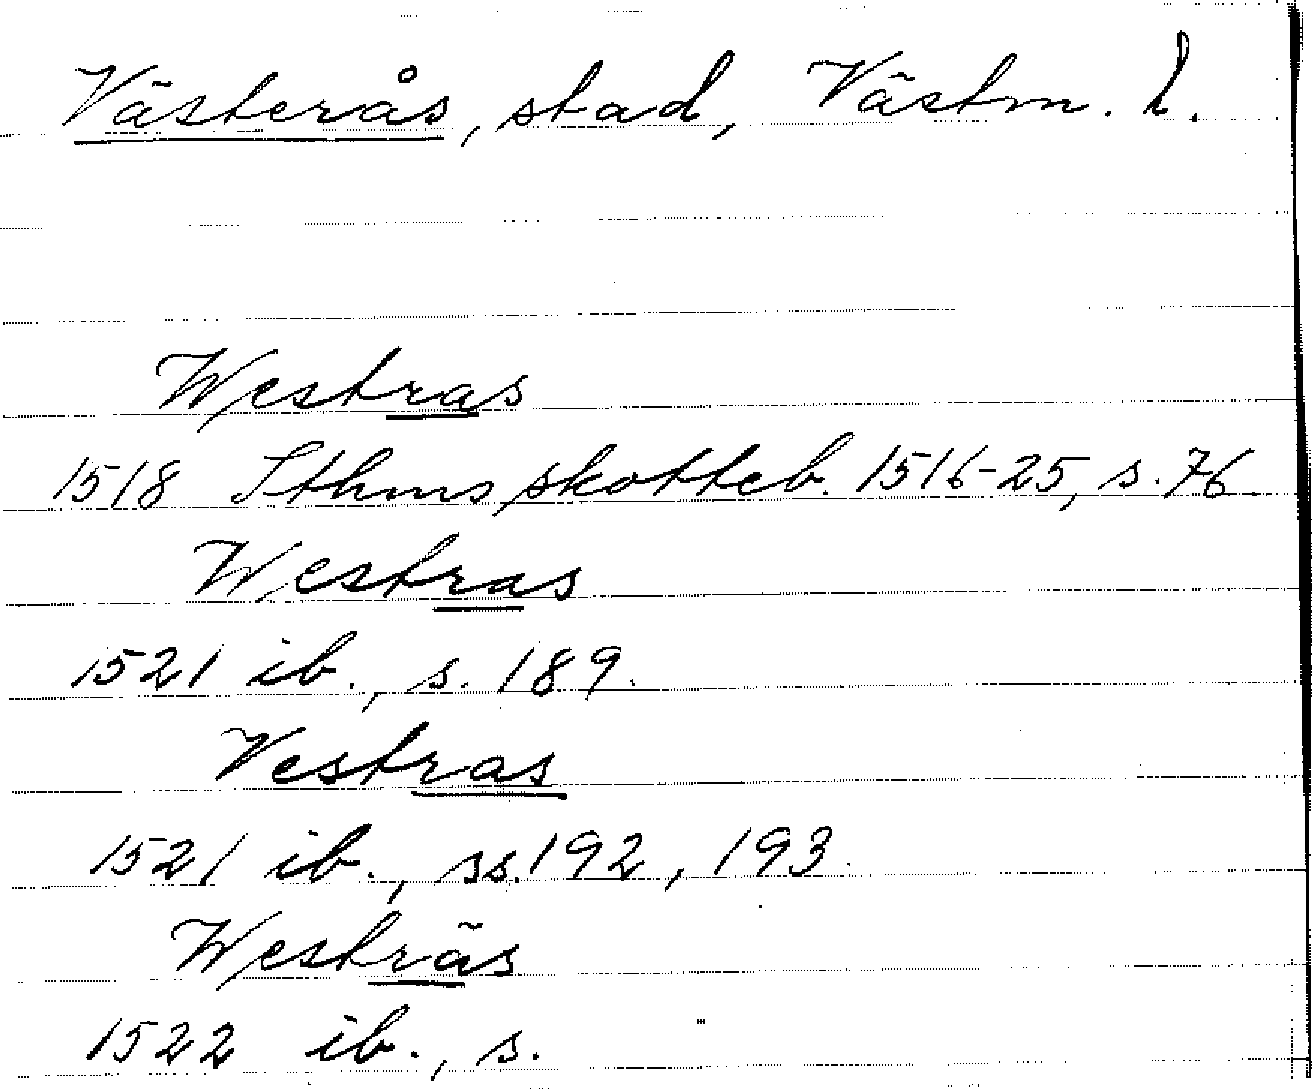 Västerås, stad, Västm. l.
Westras
1518 Sthms skotteb. 1516-25, s. 76.
Westras
1521 ib., s. 189.
Vestras
1521 ib., ss. 192, 193.
Westräs
1522 ib., s.